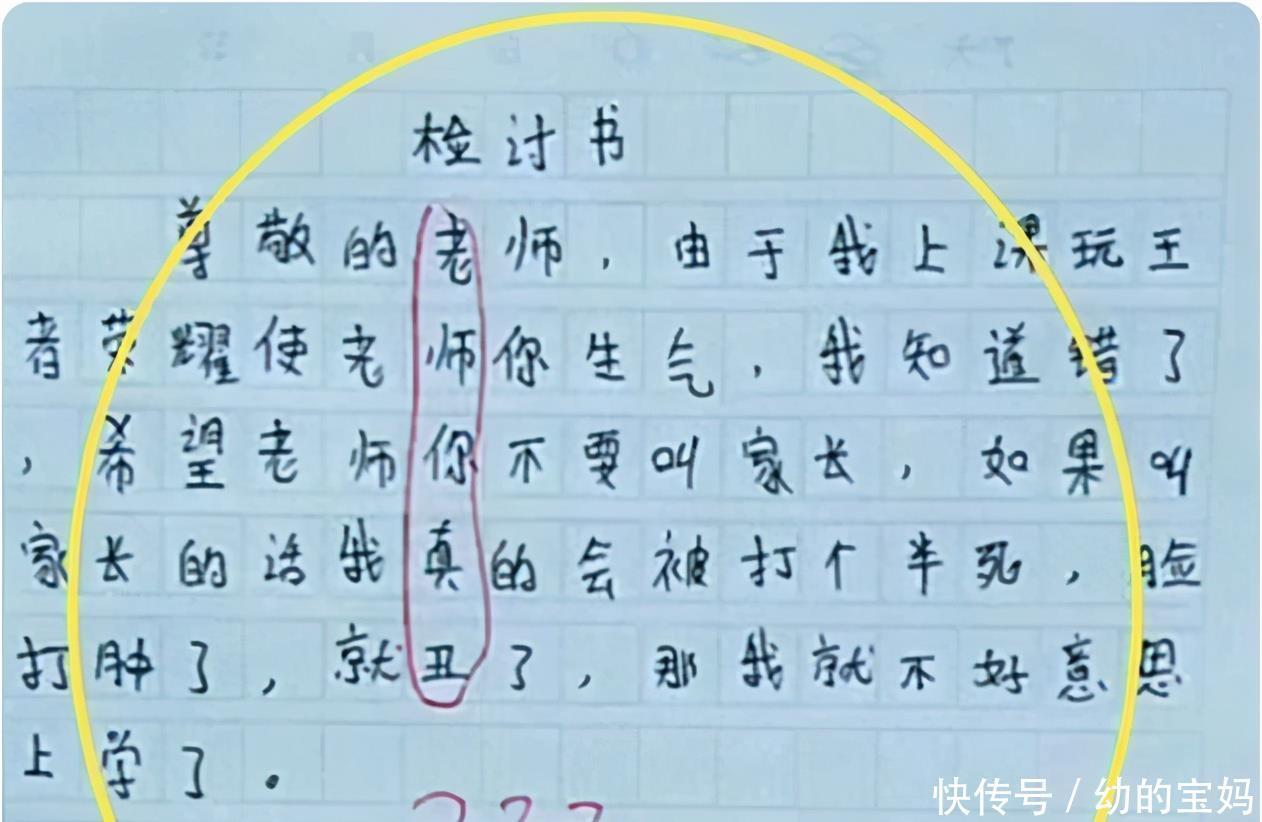 检讨书
尊敬的老师，由于我上课玩王
者荣耀使老师你生气，我知道错了
，希望老师你不要叫家长，如果叫
家长的话我真的会被打个半死，脸
打肿了，就丑了，那我就不好意思
上学了。
???
快传号/幼的宝妈